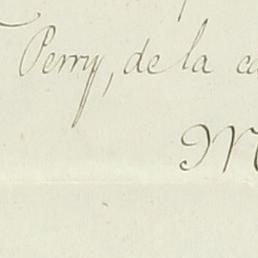 Perry, de la ca
M